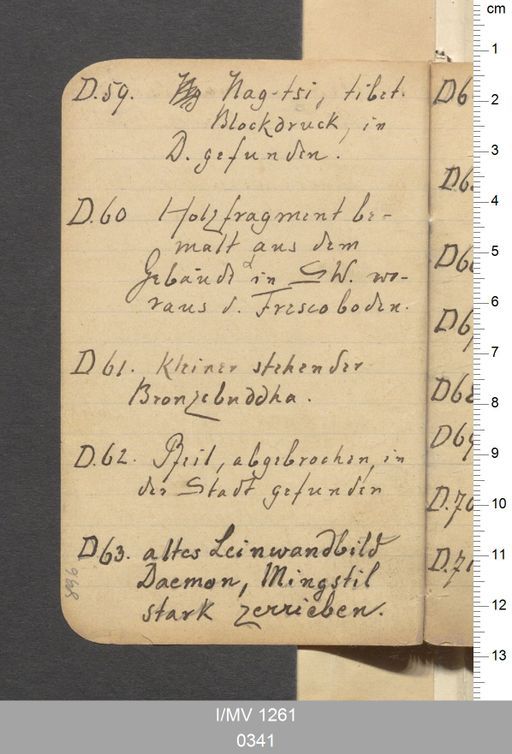 D.59. Nag-tsi, tibet.
Blockdruck, in
D. gefunden.
D.60 Holzfragment be-
malt aus dem
Gebäude α in SW. wo-
raus d. Frescoboden.
D 61. kleiner stehender
Bronzebuddha.
D.62. Pfeil, abgebrochen, in
der Stadt gefunden
D63. altes Leinwandbild
Daemon, Mingstil
stark zerrieben.
896
D6
D6
D66
D67
D68
D69
D.70
D.71
cm
1
2
3
4
5
6
7
8
9
10
11
12
13
I/MV 1261
0341